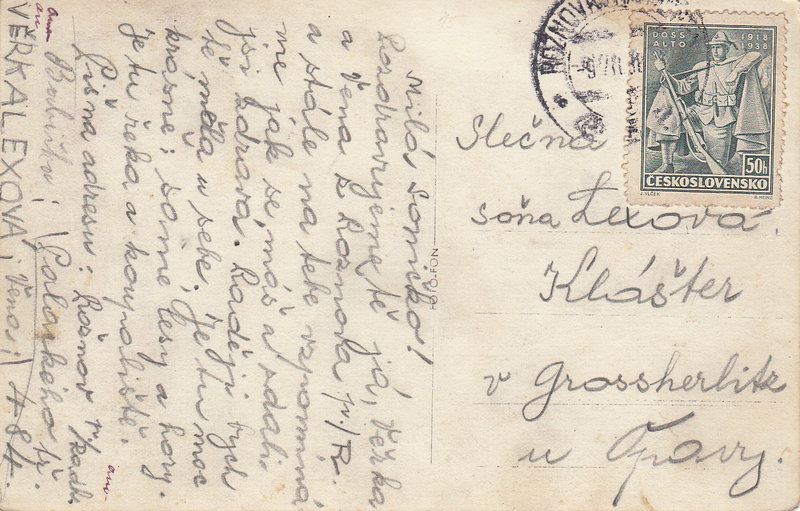 Milá Soničko!
Pozdravujeme tě já, Věrka
a Věna z Rožnova p./R.
a stále na tebe vzpomíná
me jak se máš a zdali
jsi zdráva. Raději bych
tě měla u sebe. Je tu moc
krásně; samé lesy a hory.
je tu řeka a koupaliště.
Piš na adresu: Rožnov p. Radh.
Palackého tř.
VĚRKA LEXOVÁ, Věna; 484.
FOTO-FON
ROŽNOV
DOSS ALTO
1918 1938
50h
ČESKOSLOVENSKO
J. VLČEK
B. HEINZ
Slečna
Soňa Lexová.
Klášter
v Grossherlitz
u Opavy.